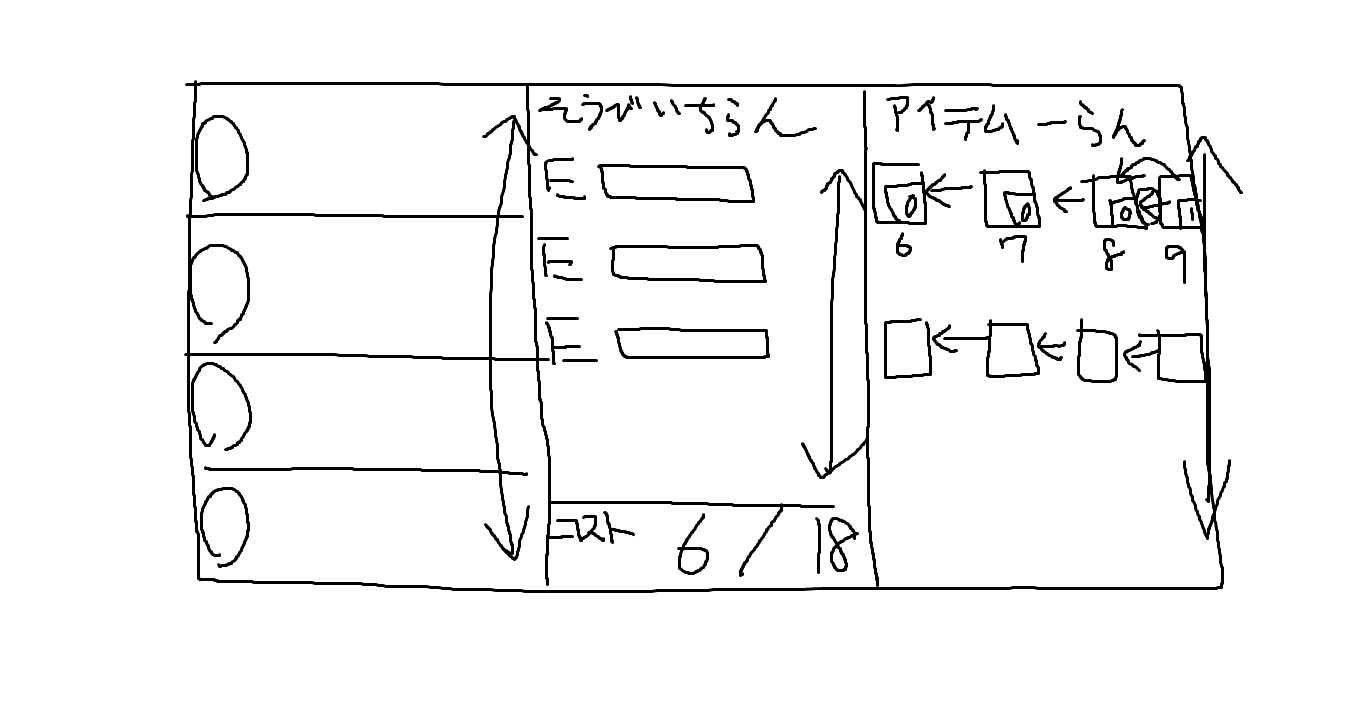 そうびいちらん
E
E
E
コスト 6 / 18
アイテム一らん
0 0 0 1
6 7 8 9